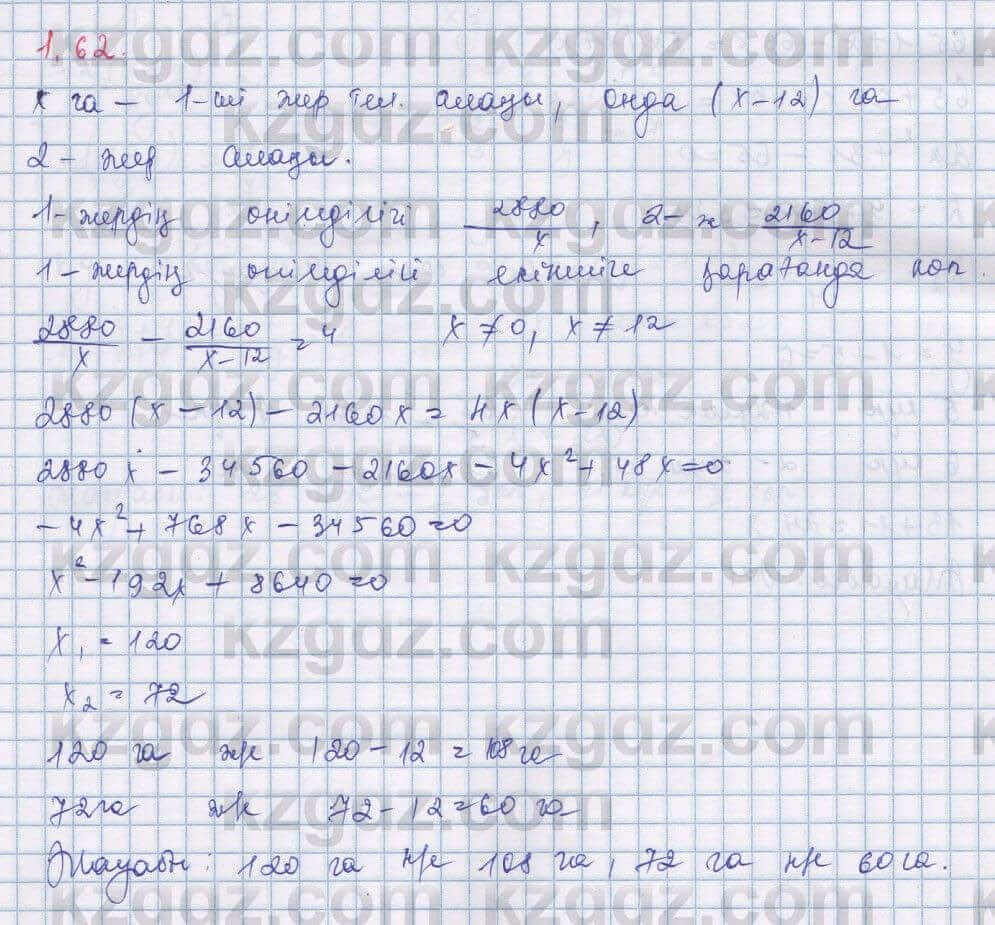 1.62.
x га – 1-ші жер тел. алады, онда (x – 12) га
2 – жер алады.
1-жердің өнімділігі 2880/x, 2-ж 2160/(x-12)
1-жердің өнімділігі екіншіге қарағанда көп.
2880/x - 2160/(x-12) = 4 x ≠ 0, x ≠ 12
2880 (x - 12) - 2160x = 4x (x-12)
2880x - 34560 - 2160x - 4x² + 48x = 0
-4x² + 768x - 34560 = 0
x² - 192x + 8640 = 0
x₁ = 120
x₂ = 72
120 га ж/е 120 - 12 = 108 га
72 га ж/е 72 - 12 = 60 га
Жауабы: 120 га ж/е 108 га, 72 га ж/е 60 га.
kzgdz.com